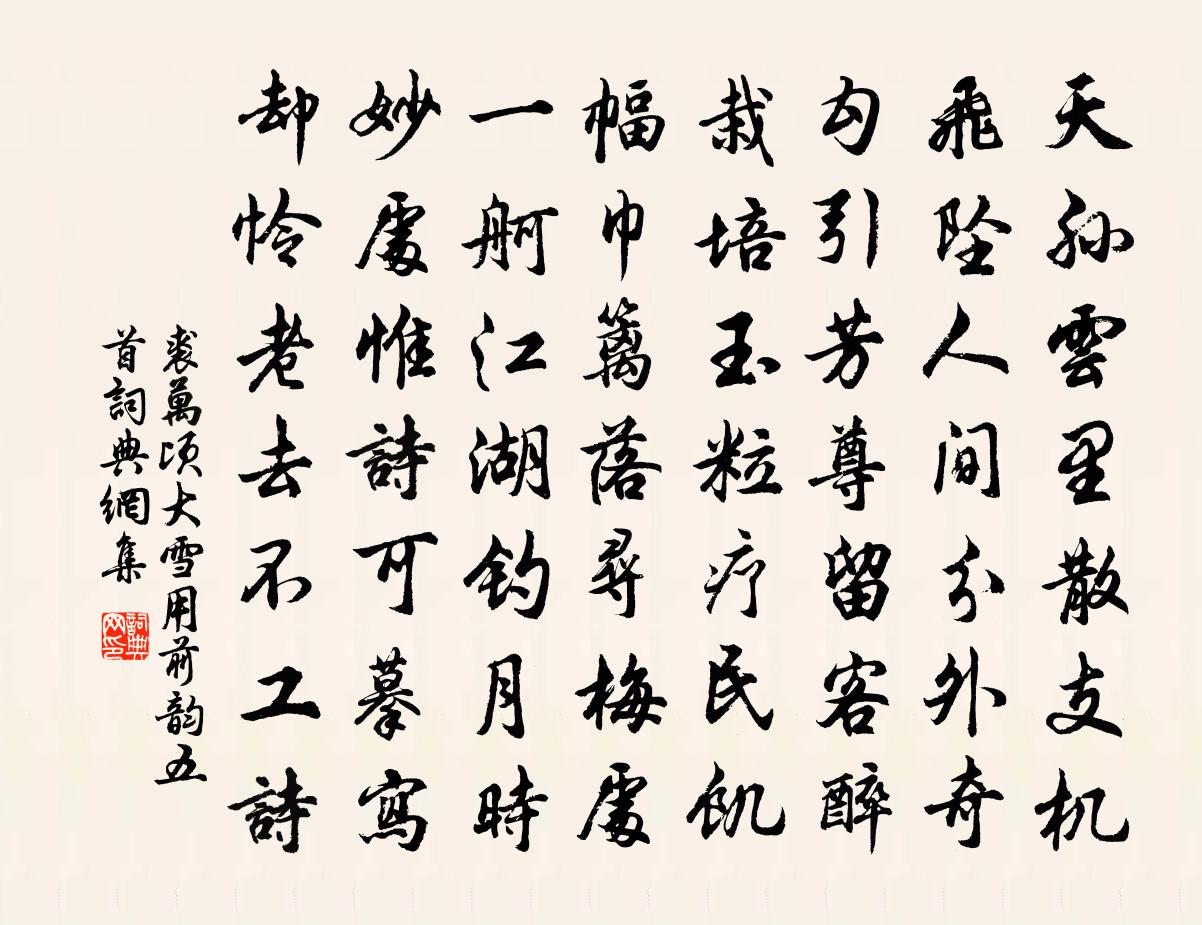 天孫雲里散支机
飛墜人间分外奇
勾引芳尊留客醉
栽培玉粒疗民飢
幅巾篱落尋梅處
一舸江湖钓月時
妙處惟詩可摹寫
却怜老去不工詩
裘萬頃大雪用前韵五
首詞典網集
詞典网印